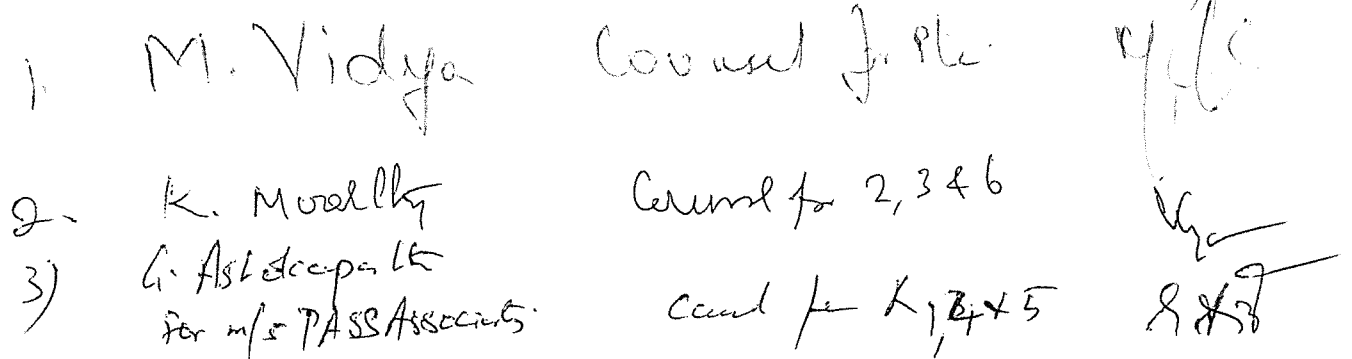 1. M. Vidya Counsel for Ptr.
2. K. Moorthy Counsel for 2, 3 & 6
3) G. Ashokapathy
For M/s PASS Associates. Counsel for & 5